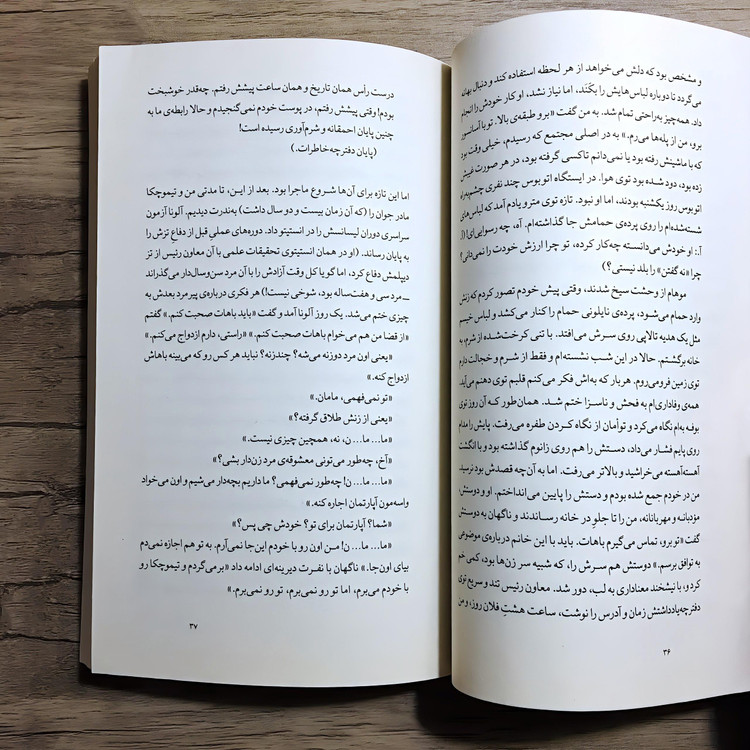 و مشخص بود که دلش می‌خواهد از هر لحظه استفاده کند و دنبال بهانه
می‌گردد تا دوباره لباس‌هایش را بکَنَد، اما نیاز نشد، او کار خودش را انجام
داد. همه‌چیز به‌راحتی تمام شد. به من گفت «برو طبقه‌ی بالا. تو با آسانسور
برو، من از پله‌ها می‌رم.» به در اصلی مجتمع که رسیدم، خیلی وقت بود
که با ماشینش رفته بود یا نمی‌دانم تاکسی گرفته بود، در هر صورت غیبش
زده بود، دود شده بود توی هوا. در ایستگاه اتوبوس چند نفری چشم‌به‌راه
اتوبوس روز یکشنبه بودند، اما او نبود. تازه توی مترو یادم آمد که لباس‌های
شسته‌شده‌ام را روی پرده‌ی حمامش جا گذاشته‌ام. آه، چه رسوایی‌ای! (ل.
آ.: او خودش می‌دانسته چه‌کار کرده، تو چرا ارزش خودت را نمی‌دانی؟
چرا «نه گفتن» را بلد نیستی؟)
موهام از وحشت سیخ شدند، وقتی پیش خودم تصور کردم که زنش
وارد حمام می‌شود، پرده‌ی نایلونی حمام را کنار می‌کشد و لباس خیسم
مثل یک هدیه تالاپی روی سرش می‌افتد. با تنی کرخت‌شده از شرم، به
خانه برگشتم. حالا در این شب نشسته‌ام و فقط از شرم و خجالت دارم
توی زمین فرومی‌روم. هربار که به‌اش فکر می‌کنم قلبم توی دهنم می‌آید.
همه‌ی وفاداری‌ام به فحش و ناسزا ختم شد. همان‌طور که آن روز توی
بوفه به‌ام نگاه می‌کرد و توأمان از نگاه کردن طفره می‌رفت. پایش را مدام
روی پایم فشار می‌داد، دستش را هم روی زانوم گذاشته بود و با انگشت
آهسته‌آهسته می‌خراشید و بالاتر می‌رفت. اما به آن‌چه قصدش بود نرسید.
من در خودم جمع شده بودم و دستش را پایین می‌انداختم. او و دوستش،
مؤدبانه و مهربانانه، من را تا جلو در خانه رساندند و ناگهان به دوستش
گفت «تو برو، تماس می‌گیرم باهات. باید با این خانم درباره‌ی موضوعی
به توافق برسم.» دوستش هم سرش را، که شبیه سر زن‌ها بود، کمی خم
کرد و، با نیشخند معناداری به لب، دور شد. معاون رئیس تند و سریع توی
دفترچه‌یادداشتش زمان و آدرس را نوشت، ساعت هشتِ فلان روز، و من
۳۶
درست رأس همان تاریخ و همان ساعت پیشش رفتم. چه‌قدر خوشبخت
بودم! وقتی پیشش رفتم، در پوست خودم نمی‌گنجیدم و حالا رابطه‌ی ما به
چنین پایان احمقانه و شرم‌آوری رسیده است!
(پایان دفترچه‌خاطرات.)
اما این تازه برای آن‌ها شروع ماجرا بود. بعد از این، تا مدتی من و تیموچکا
مادر جوان را (که آن زمان بیست و دو سال داشت) به‌ندرت دیدیم. آلونا آزمون
سراسری دوران لیسانسش را در انستیتو داد. دوره‌های عملی قبل از دفاعِ تزش را
به پایان رساند. (او در همان انستیتوی تحقیقات علمی با آن معاون رئیس از تز
دیپلمش دفاع کرد، اما گویا کل وقت آزادش را با آن مرد سن‌وسال‌دار می‌گذراند
ــ مرد سی و هفت‌ساله بود، شوخی نیست!) هر فکری درباره‌ی پیرمرد بعدش به
چیزی ختم می‌شد. یک روز آلونا آمد و گفت «باید باهات صحبت کنم.» گفتم
«از قضا من هم می‌خوام باهات صحبت کنم.» «راستی، دارم ازدواج می‌کنم.»
«یعنی اون مرد دوزنه می‌شه؟ چندزنه؟ نباید هر کس رو که می‌بینه باهاش
ازدواج کنه.»
«تو نمی‌فهمی، مامان.»
«یعنی از زنش طلاق گرفته؟»
«ما... ما... ن، نه، همچین چیزی نیست.»
«آخ، چه‌طور می‌تونی معشوقه‌ی مرد زن‌دار بشی؟»
«ما... ما... ن! چه‌طور نمی‌فهمی؟ ما داریم بچه‌دار می‌شیم و اون می‌خواد
واسه‌مون آپارتمان اجاره کنه.»
«شما؟ آپارتمان برای تو؟ خودش چی پس؟»
«ما... ما... ن! من اون رو با خودم این‌جا نمی‌آرم. به تو هم اجازه نمی‌دم
بیای اون‌جا.» ناگهان با نفرت دیرینه‌ای ادامه داد «برمی‌گردم و تیموچکا رو
با خودم می‌برم، اما تو رو نمی‌برم، تو رو نمی‌برم.»
۳۷